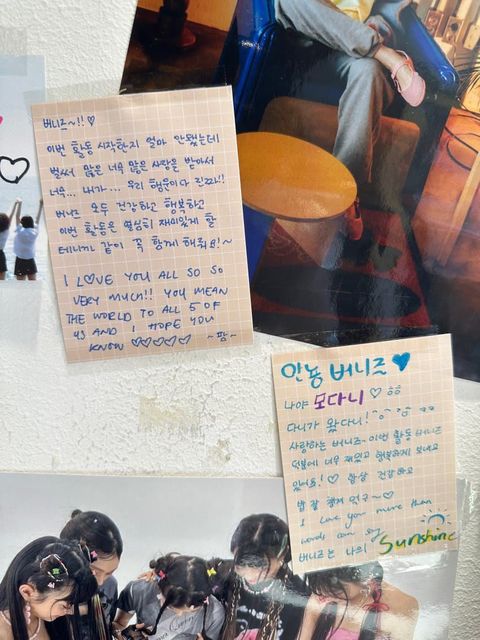 버니즈~!!♡
이번 활동 시작한지 얼마 안됐는데
벌써 많은 너무 많은 사랑을 받아서
너무... 내가... 우리 행운이다 진짜!!
버니즈 모두 건강하고 행복하고
이번 활동은 열심히 재미있게 할
테니까 같이 꼭 함께 해줘요!~
I L♡VE YOU ALL SO SO
VERY MUCH!! YOU MEAN
THE WORLD TO ALL 5 OF
US AND I HOPE YOU
KNOW ♡♡♡♡♡ ~팜~
안뇽 버니즈 ♥
나야 모다니 ♡ ㅎㅎ
다니가 왔다니!
사랑하는 버니즈 이번 활동 버니즈
덕분에 너무 재밌고 행복하게 보내고
있어용!♡ 항상 건강하고
밥 잘 챙겨 먹구~♡
I love you more than
words can say
버니즈는 나의 Sunshine